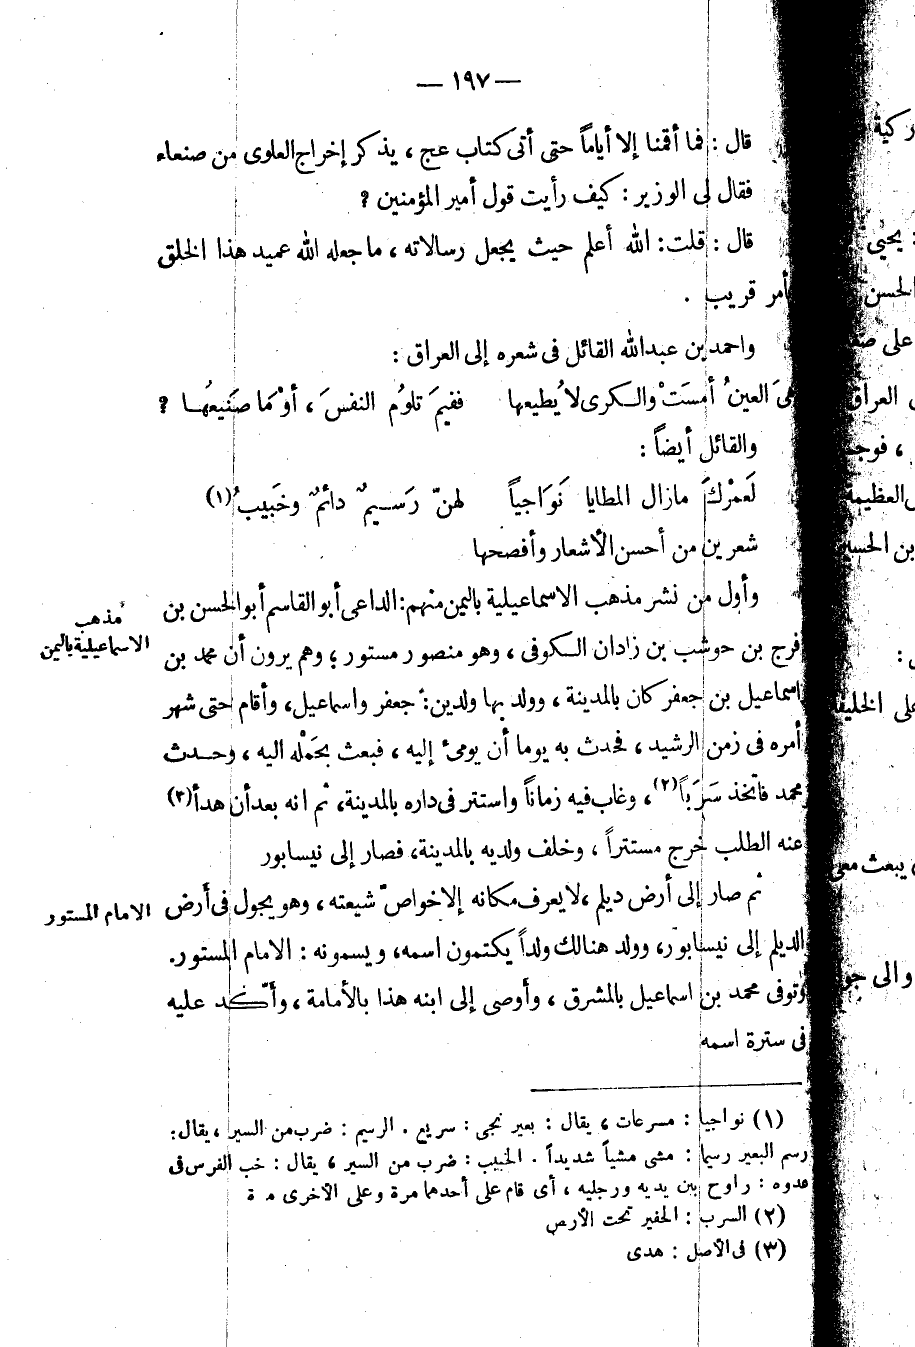 — ١٩٧ —
قال : فما أقمنا إلا أياماً حتى أتى كتاب عج ، يذكر إخراج العلوى من صنعاء
فقال لى الوزير : كيف رأيت قول أمير المؤمنين ؟
قال : قلت : الله أعلم حيث يجعل رسالاته ، ما جعله الله عميد هذا الخلق
بأمر قريب .
واحمد بن عبدالله القائل فى شعره إلى العراق :
هىَ العينُ أمسَتْ والكرى لا يُطيعها ففيمَ تلوُم النفسَ ، أوْ مَا صَنيعُها ؟
والقائل أيضاً :
لَعمْركَ مازال المطايا نَوَاجياً لهنّ رَسيمٌ دائمٌ وخَبيبُ (١)
شعرين من أحسن الأشعار وأفصحها
وأول من نشر مذهب الاسماعيلية باليمن منهم : الداعى أبو القاسم أبو الحسن بن
فرج بن حوشب بن زادان الكوفى ، وهو منصور مستور ؛ وهم يرون أن محمد بن
اسماعيل بن جعفر كان بالمدينة ، وولد بها ولدين : جعفر واسماعيل، وأقام حتى شهر
أمره فى زمن الرشيد ، فحدث به يوما أن يومئ إليه ، فبعث بحَمْله اليه ، وحدث
محمد فاتخذ سَرَباً (٢) ، وغاب فيه زماناً واستتر فى داره بالمدينة، ثم انه بعد أن هدأ (٣)
عنه الطلب خرج مستتراً ، وخلف ولديه بالمدينة، فصار إلى نيسابور
ثم صار إلى أرض ديلم ، لا يعرف مكانه إلا خواصّ شيعته ، وهو يجول فى أرض
الديلم إلى نيسابور، وولد هنالك ولداً يكتمون اسمه، ويسمونه : الامام المستور.
وتوفى محمد بن اسماعيل بالمشرق ، وأوصى إلى ابنه هذا بالأمامة ، وأكد عليه
فى سترة اسمه
مذهب
الاسماعيلية باليمن
الامام المستور
(١) نواجيا : مسرعات ، يقال : بعير نجى : سريع . الرسيم : ضرب من السير ، يقال :
رسم البعير رسيما : مشى مشياً شديداً . الخبيب : ضرب من السير ، يقال : خب الفرس فى
عدوه : راوح بين يديه ورجليه ، أى قام على أحدهما مرة وعلى الأخرى مرة
(٢) السرب : الحفير تحت الأرض
(٣) فى الأصل : هدى
يحيى
الحسن
على
العراق
، فوجد
العظيمة
بن الحسين
يبعث معى
والى